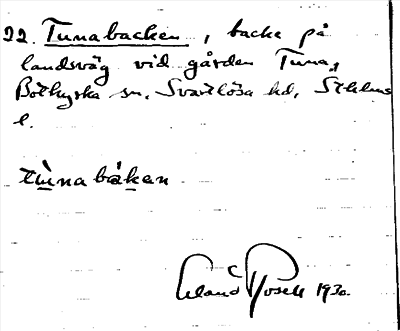 22. Tunabacken, backe på
landsväg vid gården Tuna,
Botkyrka sn, Svartlösa hd, Sthlms
l.
tùnabàkan
Erland Rosell 1930.